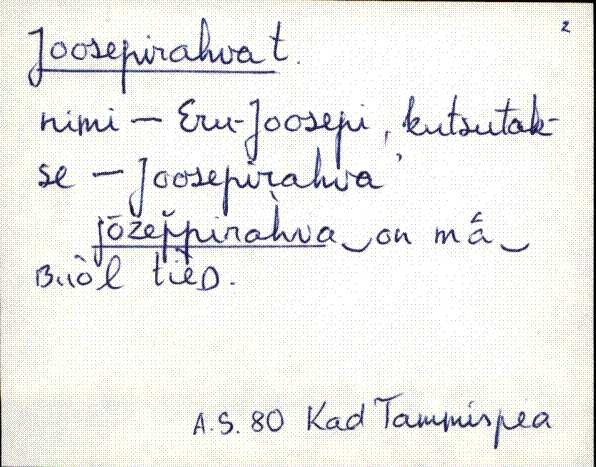 2
Joosepirahva t.
nimi – Eru-Joosepi, kutsutak-
se – Joosepirahva
jōžep̆piràhva‿on mǻ‿
Buòl tièD.
A.S. 80 Kad Tammispea